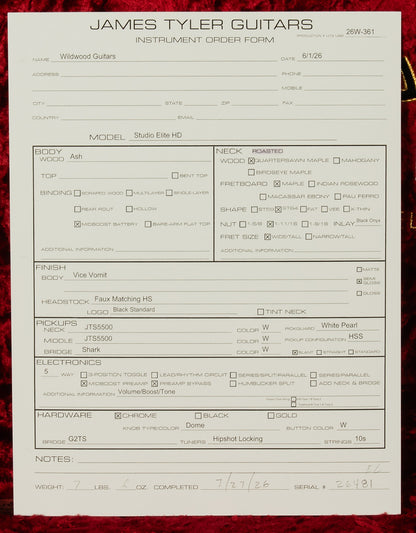 JAMES TYLER GUITARS
INSTRUMENT ORDER FORM 26W-361
NAME Wildwood Guitars DATE 6/1/26
ADDRESS PHONE
MOBILE
CITY STATE ZIP FAX
COUNTRY EMAIL
MODEL Studio Elite HD
BODY
WOOD Ash
TOP BENT TOP
BINDING SCRAPED WOOD MULTI-LAYER SINGLE-LAYER
REAR ROUT HOLLOW
MIDBOOST BATTERY BARE-ARM FLAT TOP
ADDITIONAL INFORMATION
NECK ROASTED
WOOD QUARTERSAWN MAPLE MAHOGANY
BIRDSEYE MAPLE
FRETBOARD MAPLE INDIAN ROSEWOOD
MACASSAR EBONY PAU FERRO
SHAPE FAT VEE X-THIN
NUT 1-5/8 1-11/16 INLAY Black Onyx
FRET SIZE WIDE/TALL NARROW/TALL
ADDITIONAL INFORMATION
FINISH
BODY Vice Vomit
MATTE
SEMI GLOSS
GLOSS
HEADSTOCK Faux Matching HS
LOGO Black Standard TINT NECK
PICKUPS
NECK JTS5500 COLOR W PICKGUARD White Pearl
MIDDLE JTS5500 COLOR W PICKUP CONFIGURATION HSS
BRIDGE Shark COLOR W SLANT STRAIGHT STANDARD
ELECTRONICS
5 WAY 3-POSITION TOGGLE LEAD/RHYTHM CIRCUIT SERIES/SPLIT-PARALLEL SERIES/PARALLEL
MIDBOOST PREAMP PREAMP BYPASS HUMBUCKER SPLIT ADD NECK & BRIDGE
ADDITIONAL INFORMATION Volume/Boost/Tone
HARDWARE CHROME BLACK GOLD
KNOB TYPE/COLOR Dome BUTTON COLOR W
BRIDGE G2TS TUNERS Hipshot Locking STRINGS 10s
NOTES:
WEIGHT: 7 LBS. OZ. COMPLETED 7/27/26 SERIAL # 26481